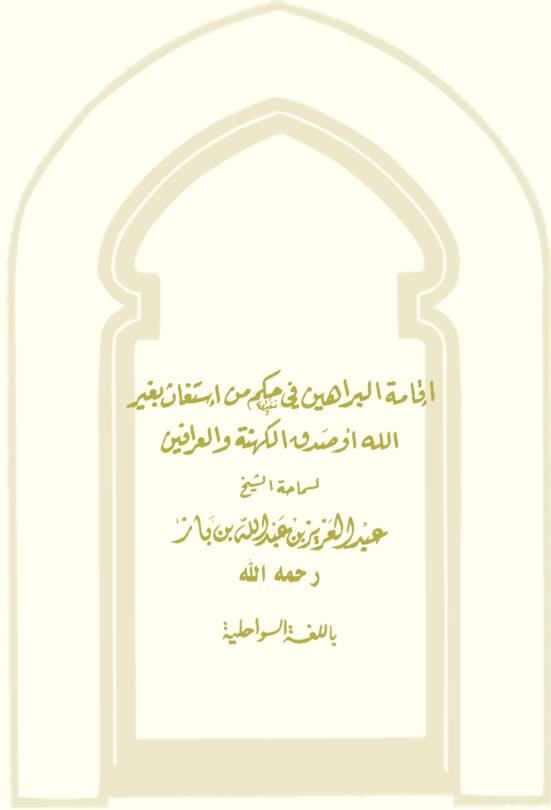 إقامة البراهين في حكم من استغاث بغير
الله أو صدق الكهنة والعرافين
لسماحة الشيخ
عبد العزيز بن عبد الله بن باز
رحمه الله
باللغة السواحلية